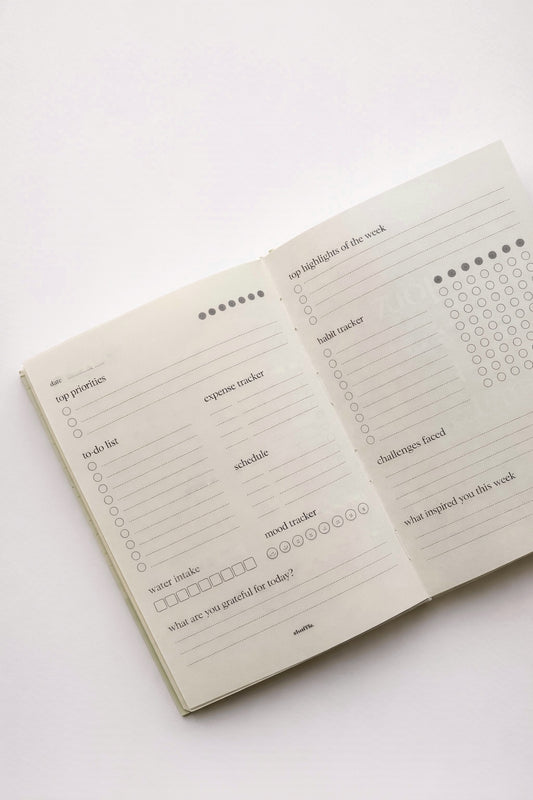 date
top priorities
expense tracker
to-do list
schedule
mood tracker
water intake
what are you grateful for today?
top highlights of the week
habit tracker
challenges faced
what inspired you this week